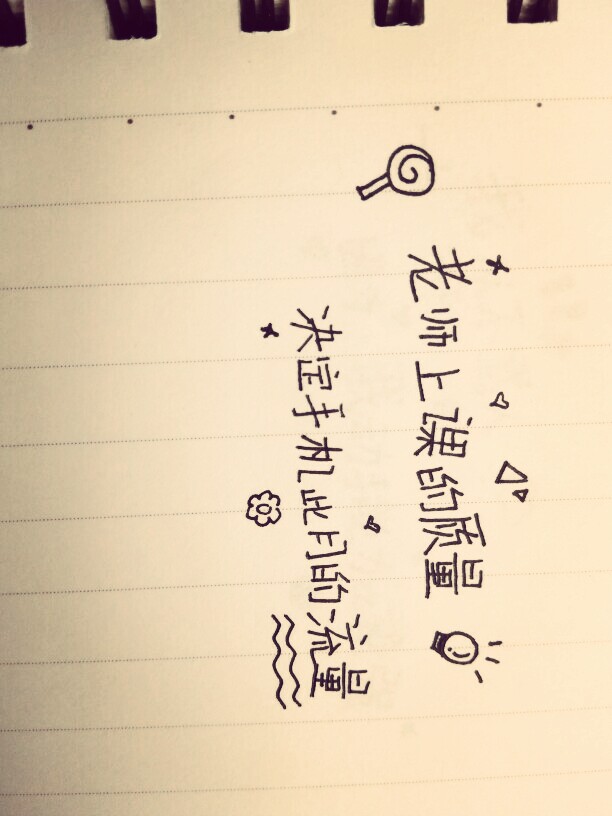 老师上课的质量
决定手机此月的流量